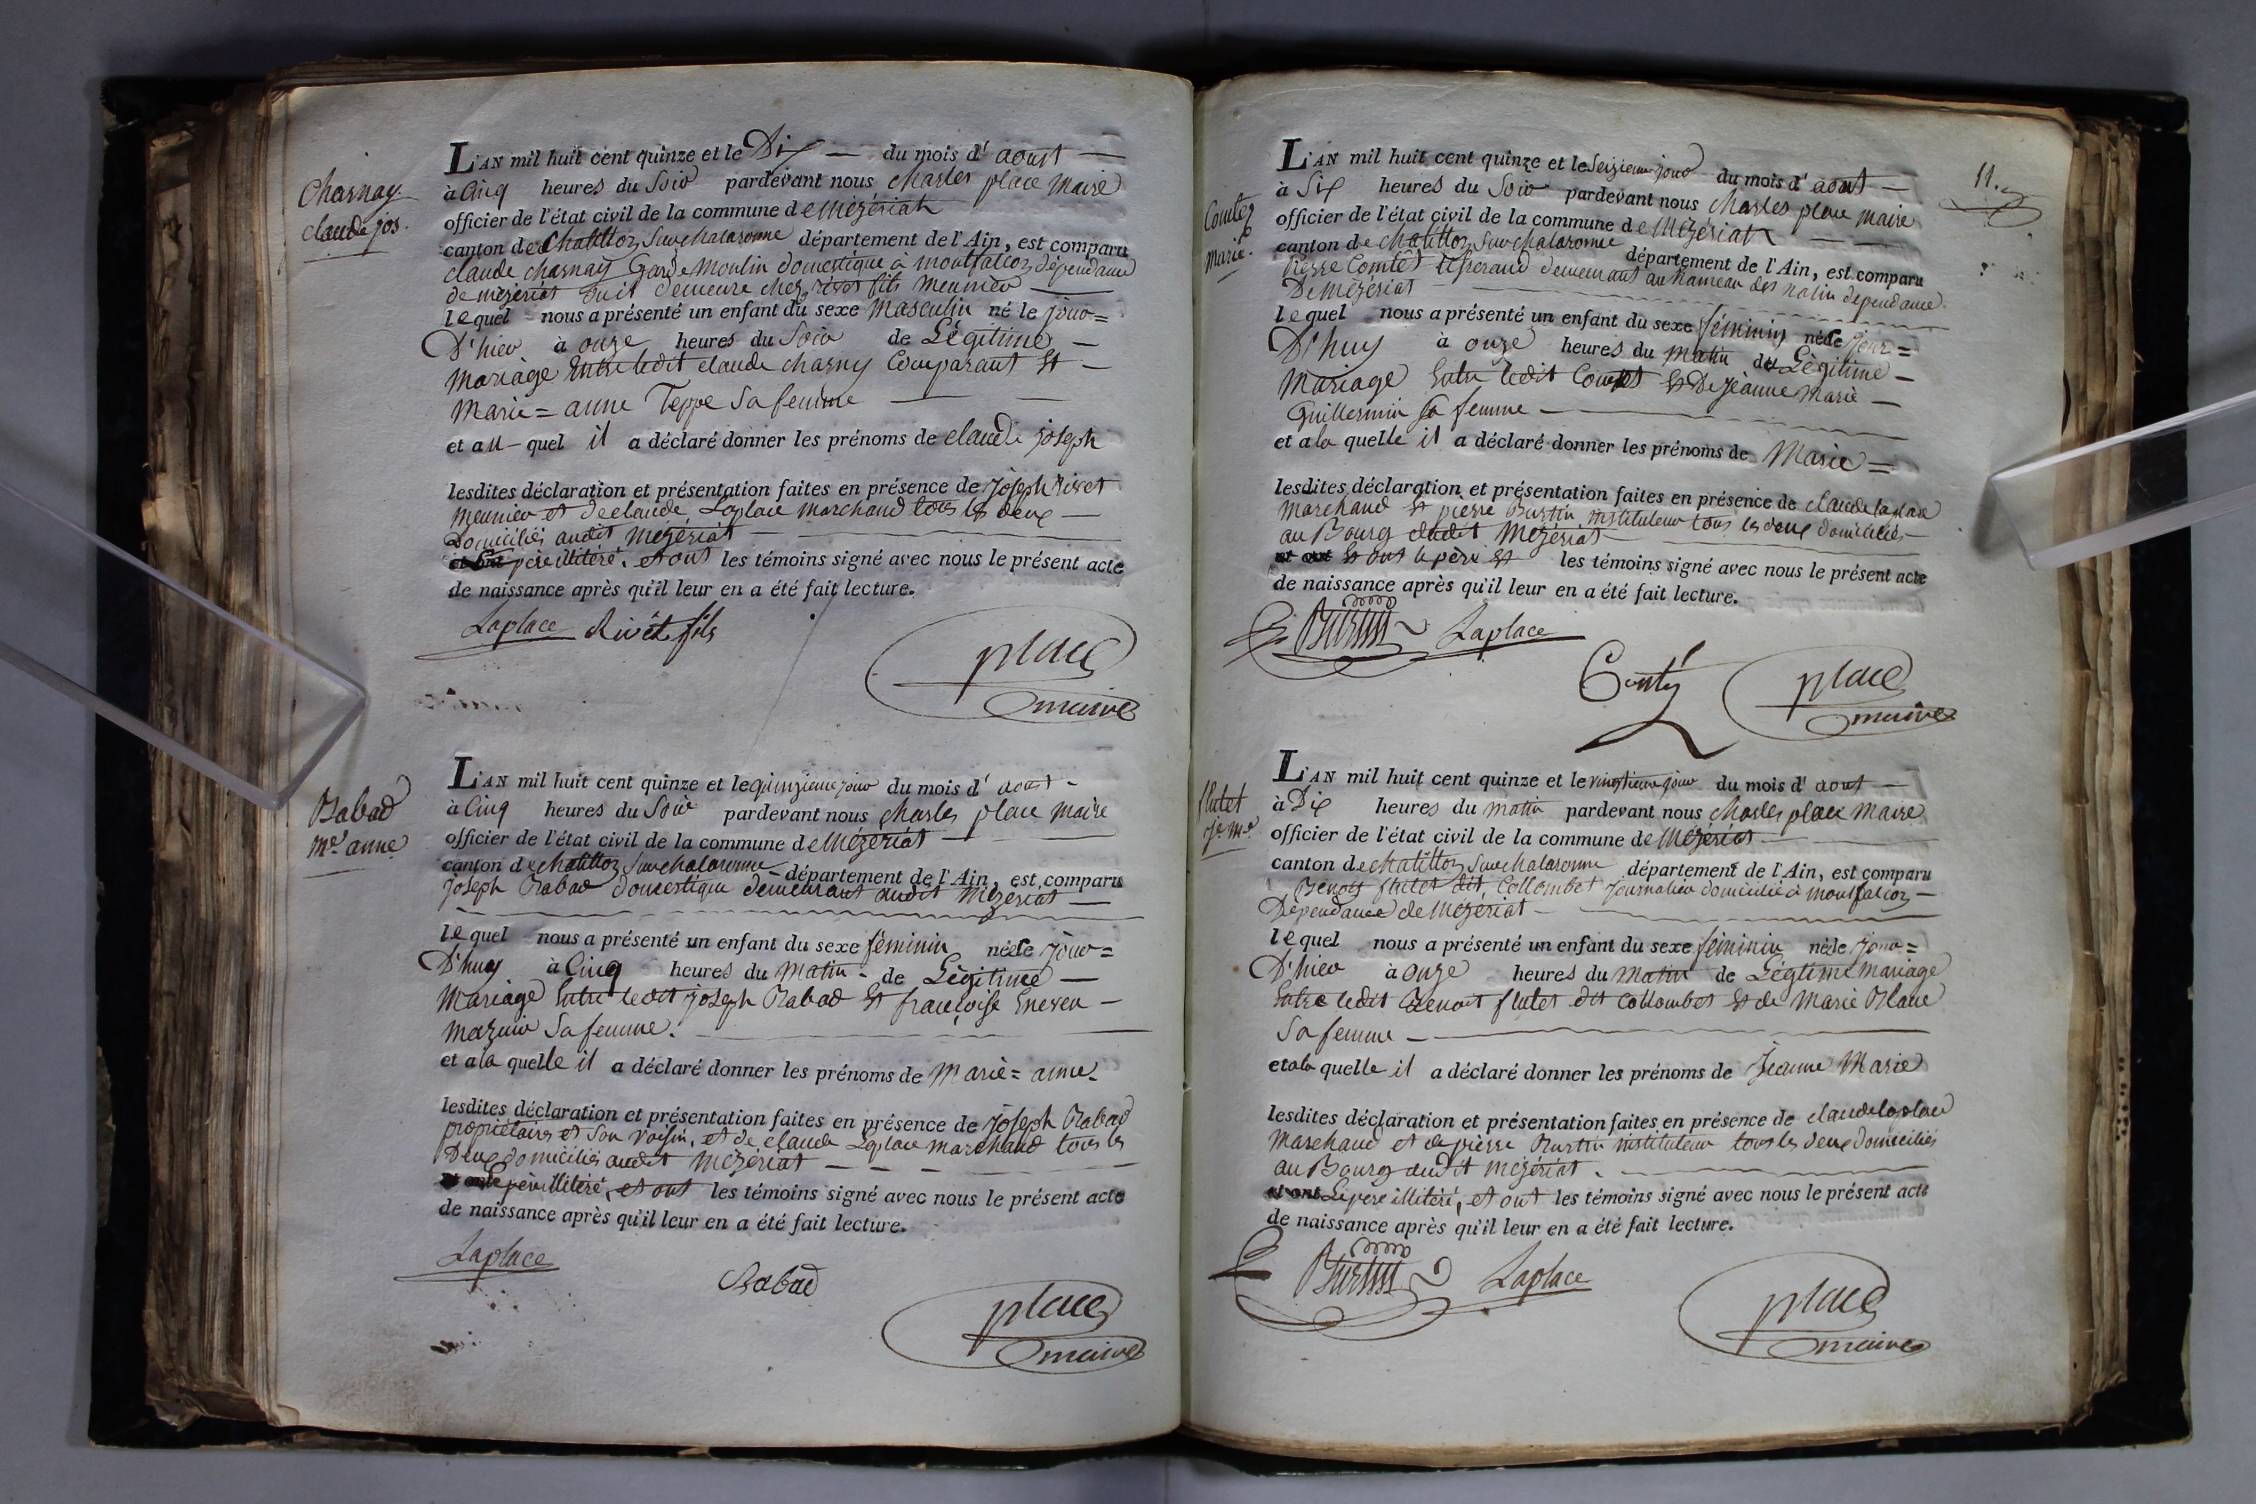 Charnay
claude jos.
L'AN mil huit cent quinze et le Dix — du mois d'aoust —
à Cinq heures du Soir pardevant nous charles place maire
officier de l'état civil de la commune de Mézériat
canton de Chatillon Sur chalaronne département de l'Ain, est comparu
claude charnay Garde Moulin domestique à montfalcon dépendance
de mézériat demeure chez rivet fils meunier —
lequel nous a présenté un enfant du sexe Masculin né le jour =
D'hier à onze heures du Soir de Légitime —
Mariage Entre ledit claude charny Comparant Et —
Marie = anne Teppe Sa femme —
et au-quel il a déclaré donner les prénoms de claude joseph
lesdites déclaration et présentation faites en présence de joseph rivet
meunier et de claude Laplace Marchand tous les deux —
Domiciliés audit Mézériat —
père illitéré. et ont les témoins signé avec nous le présent acte
de naissance après qu'il leur en a été fait lecture.
Laplace Rivet fils
place
maire
Rabad
me anne
L'AN mil huit cent quinze et le quinzieme jour du mois d'aoust -
à Cinq heures du Soir pardevant nous charles place maire
officier de l'état civil de la commune de Mézériat
canton de chatillon Sur chalaronne département de l'Ain, est comparu
joseph Rabad domestique demeurant audit Mézériat —
lequel nous a présenté un enfant du sexe féminin née le jour =
D'huy à Cinq heures du matin - de Légitime —
Mariage Entre ledit joseph Rabad Et françoise —
mazuir Sa femme.
et a la quelle il a déclaré donner les prénoms de Marie = anne.
lesdites déclaration et présentation faites en présence de joseph Rabad
propriétaire et Son voisin, et de claude Laplace marchand tous les
Deux domiciliés audit Mézériat —
père illitéré, et ont les témoins signé avec nous le présent acte
de naissance après qu'il leur en a été fait lecture.
Laplace Rabad
place
maire
11.
Comtet
marie.
L'AN mil huit cent quinze et le Seizieme jour du mois d'aout —
à Six heures du Soir pardevant nous charles place maire
officier de l'état civil de la commune de Mézériat
canton de chatillon Sur chalaronne département de l'Ain, est comparu
Pierre Comtet demeurant au hameau des dépendance
De Mézériat
lequel nous a présenté un enfant du sexe féminin née le jour =
D'huy à onze heures du matin de Légitime —
Mariage Entre ledit Comtet Et De jeanne Marie —
Guillermin Sa femme —
et a la quelle il a déclaré donner les prénoms de Marie =
lesdites déclaration et présentation faites en présence de claude laplace
marchand Et pierre Burtin instituteur tous les deux domiciliés —
au Bourg dudit Mézériat —
Et ont le père Et les témoins signé avec nous le présent acte
de naissance après qu'il leur en a été fait lecture.
Burtin Laplace
Comtet
place
maire
flutet
je me
L'AN mil huit cent quinze et le vingtieme jour du mois d'aout —
à Dix heures du matin pardevant nous charles place Maire
officier de l'état civil de la commune de Mézériat —
canton de chatillon Sur chalaronne département de l'Ain, est comparu
Benoit flutet dit Collombet journalier domicilié à montfalcon —
Dépendance de Mézériat —
lequel nous a présenté un enfant du sexe féminin née le jour =
D'hier à onze heures du matin de Légtime Mariage
Entre ledit Benoit flutet dit collombet Et de Marie Blanc
Sa femme —
et a la quelle il a déclaré donner les prénoms de Jeanne Marie
lesdites déclaration et présentation faites en présence de claude laplace
Marchand et de pierre Burtin instituteur tous les deux domiciliés
au Bourg dudit Mézériat.
Le pere illitéré, et ont les témoins signé avec nous le présent acte
de naissance après qu'il leur en a été fait lecture.
Burtin Laplace
place
maire